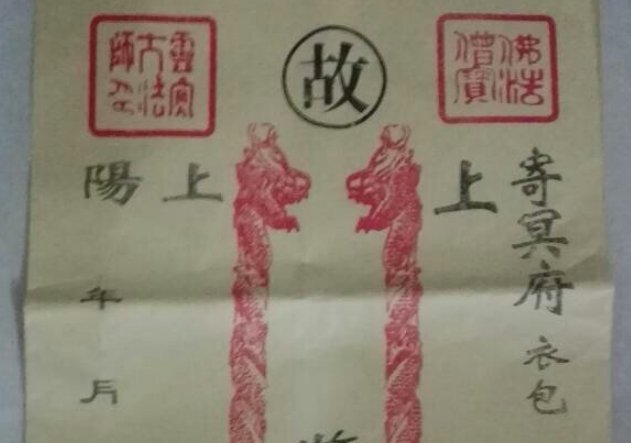 佛法僧寶
寄冥府 衣包
上
故
靈寶大法師印
上
陽 年 月